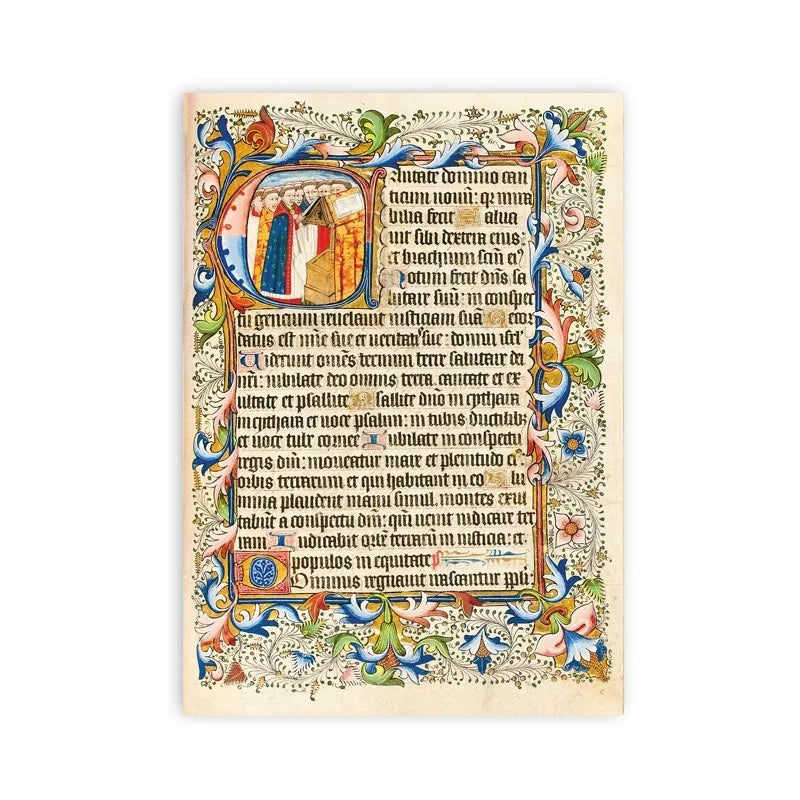 Cantate domino can
ticum nouu: qr mira
bilia fecit Salua
uit sibi dextera eius:
et brachium scm ei9
Notum fecit dns sa
lutare suu: in conspec
tu gencium reuelauit iusticiam sua Recor
datus est mie sue et ueritatis sue: domui isrl
Uiderunt omes termini terre salutare dei
nri: iubilate deo omnis terra, cantate et ex
ultate et psallite Psallite dno in cythara
in cythara et uoce psalmi: in tubis ductilib
et uoce tube cornee Iubilate in conspectu
regis dni: moueatur mare et plenitudo ei9
orbis terrarum et qui habitant in eo Flu
mina plaudent manu simul, montes exul
tabunt a conspectu dni: qm uenit iudicare ter
ram Iudicabit orbe terraru in iusticia: et
populos in equitate ps
Dominus regnauit irascantur ppli: